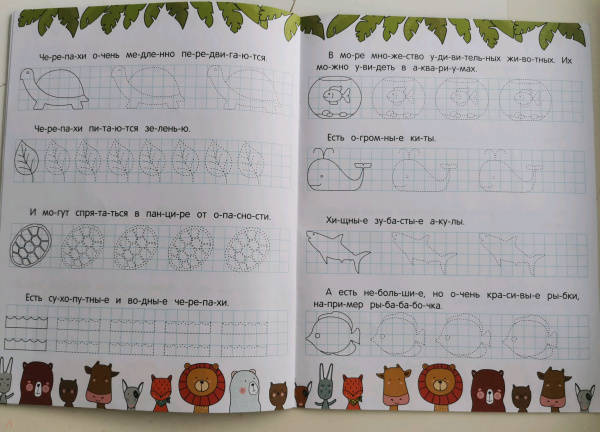 Че-ре-па-хи о-чень ме-дле-нно пе-ре-дви-га-ю-тся
Че-ре-па-хи пи-та-ю-тся зе-лень-ю.
И мо-гут спря-та-ться в пан-ци-ре от о-па-сно-сти.
Есть су-хо-пу-тны-е и во-дны-е че-ре-па-хи.
В мо-ре мно-же-ство у-ди-ви-тель-ных жи-во-тных. Их
мо-жно у-ви-деть в а-ква-ри-у-мах.
Есть о-гром-ны-е ки-ты.
Хи-щны-е зу-ба-сты-е а-ку-лы.
А есть не-боль-ши-е, но о-чень кра-си-вы-е ры-бки,
на-при-мер ры-ба-ба-бо-чка.